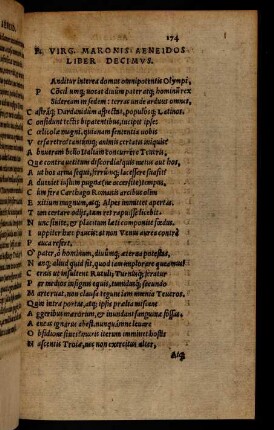 174
P. VIRG. MARONIS AENEIDOS
LIBER DECIMVS.
Anditur interea domus omnipotentis Olympi,
P Cōciliumq; uocat diuûm pater atq; hominū rex
Sideream in sedem: terras unde arduus omnes,
C astraq; Dardanidûm aspectat, populosq; Latinos.
C onsidunt tectis bipatentibus, incipit ipse:
C œlicolæ magni, quianam sententia uobis
V ersa retro? tantumq; animis certatis iniquis?
A bnueram bello Italiam concurrere Teucris;
Q uæ contra uetitum discordia? quis metus aut hos,
A ut hos arma sequi, ferrūmq; lacessere suasit?
A dueniet iustum pugnæ (ne accersite) tempus,
C um fera Carthago Romanis arcibus olim
E xitium magnum, atq; Alpes immittet apertas.
T um certare odijs, tam res rapuisse licebit.
N unc sinite, et placitum læti componite fœdus.
I uppiter hæc paucis: at non Venus aurea contra
P auca refert.
O pater, ô hominum, diuûmq; æterna potestas,
N anq; aliud quid sit, quod iam implorare queamus?
C ernis ut insultent Rutuli, Turnusq; feratur
P er medios insignis equis, tumidusq; secundo
M arte ruat, non clausa tegunt iam mœnia Teucros.
Q uin intra portas, atq; ipsis prælia miscent
A ggeribus mœrorum, et inundant sanguine fossæ.
A eneas ignarus abest. nunquàmne leuare
O bsidione sines? muris iterum imminet hostis
N ascentis Troiæ, nec non exercitus alter,
Atq;